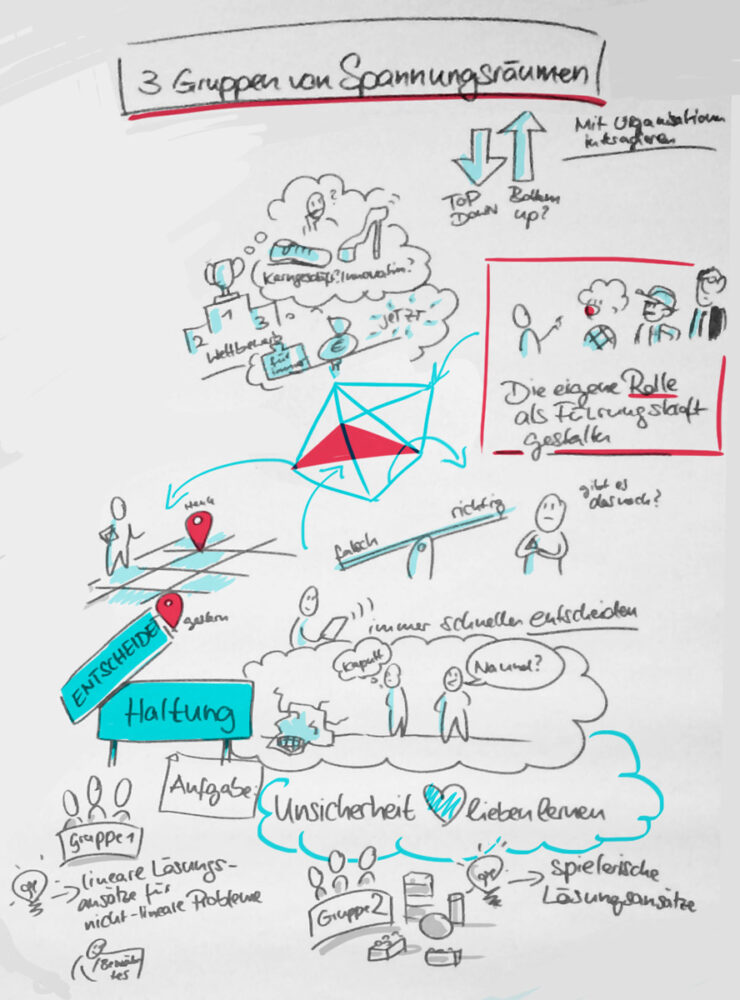 3 Gruppen von Spannungsräumen
Mit Organisationen
interagieren
TOP
DOWN
Bottom
up?
?
Kerngeschäft? Innovation?
1
2
3
Wettbewerb
für
immer
€
jetzt
Die eigene Rolle
als Führungskraft
gestalten
Heute
gestern
falsch
richtig
gibt es
das noch?
immer schneller entscheiden
ENTSCHEIDE
Haltung
Kaputt
Na und?
Aufgabe:
Unsicherheit
lieben lernen
Gruppe 1
lineare Lösungs-
ansätze für
nicht-lineare Probleme
Bewähr
tes
Gruppe 2
spielerische
Lösungsansätze